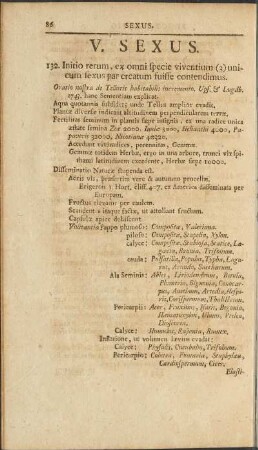 86 SEXUS.
V. SEXUS.
132. Initio rerum, ex omni specie viventium (3) uni-
cum sexus par creatum fuisse contendimus.
Oratio nostra de Telluris habitabilis incremento. Ups. & Lugdb.
hanc Sententiam explicat.
Aqua quotannis subsidet; unde Tellus amplior evadit.
Plantæ diversæ indicant altitudinem perpendicularem terræ.
Fertilitas seminum in plantis sæpe insignis, ex una radice unica
æstate semina Zeæ 2000. Inulæ 3000, Helianthi 4000, Pa-
paveris 32000, Nicotianæ 40320.
Accedunt viviradices, perennitas, Gemmæ.
Gemmæ totidem Herbæ, ergo in una arbore, trunci vix spi-
thami latitudinem excedente, Herbæ sæpe 10000.
Disseminatio Naturæ stupenda est.
Aëris vis, præsertim vere & autumno procellæ.
Erigeron Hort. cliff. 407. ex America disseminata per
Europam.
Fructus elevatus per caulem.
Scandent itaque factæ, ut attollant fructum.
Capsulæ apice dehiscens
Volitantia Pappo plumoso: Compositæ, Valeriana.
piloso: Compositæ, Stapelia, Xylon.
calyce: Compositæ, Scabiosa, Statice, La-
goecia, Brunia, Trifolium.
cauda: Pulsatilla, Populus, Typha, Lagu-
rus, Arundo, Saccharum.
Ala Seminis: Abies, Liriodendrum, Betula,
Plumeria, Bignonia, Conocar-
pus, Anethum, Artedia, Hespe-
ris, Corispermum, Thalictrum.
Pericarpii: Acer, Fraxinus, Isatis, Begonia,
Hæmatoxylum, Ulmus, Ptelea,
Dioscorea.
Calyce: Humulus, Rajania, Rumex.
Inflatione, ut volumen levius evadat:
Calyce: Physalis, Cucubalus, Trifolium.
Pericarpio: Colutea, Fumaria, Staphylæa,
Cardiospermum, Cicer.
Elasti-